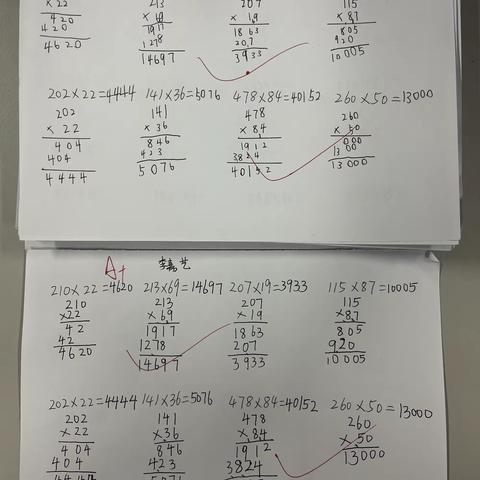 ×22 213 207 115
420 ×69 ×19 ×87
420 1917 1863 805
4620 1278 207 920
14697 3933 10005
202×22=4444 141×36=5076 478×84=40152 260×50=13000
202 141 478 260
×22 ×36 ×84 ×50
404 846 1912 000
404 423 3824 1300
4444 5076 40152 13000
A+ 李嘉艺
210×22=4620 213×69=14697 207×19=3933 115×87=10005
210 213 207 115
×22 ×69 ×19 ×87
42 1917 1863 805
42 1278 207 920
4620 14697 3933 10005
202×22=4444 141×36=5076 478×84=40152 260×50=13000
202 141 478 260
×22 ×36 ×84 ×50
404 846 1912 13000
404 423 3824